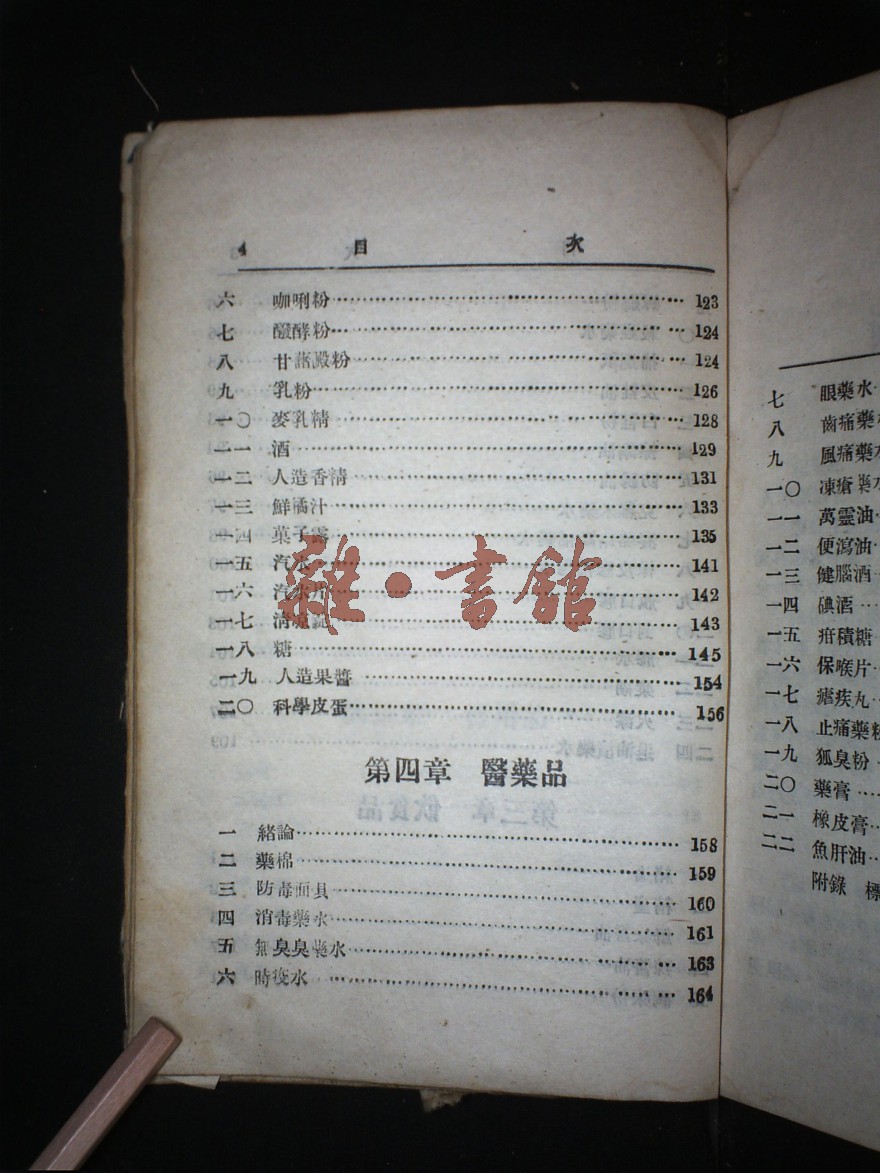 4 目 次
六 咖唎粉 123
七 醱酵粉 124
八 甘藷澱粉 124
九 乳粉 126
一〇 麥乳精 128
一一 酒 129
一二 人造香精 131
一三 鮮橘汁 133
一四 菓子露 135
一五 汽水 141
一六 汽水片 142
一七 淸 143
一八 糖 145
一九 人造果醬 154
二〇 科學皮蛋 156
第四章 醫藥品
一 緒論 158
二 藥棉 159
三 防毒面具 160
四 消毒藥水 161
五 無臭臭藥水 163
六 時疫水 164
雜·書館
七 眼藥水
八 齒痛藥
九 風痛藥水
一〇 凍瘡藥水
一一 萬靈油
一二 便瀉油
一三 健腦酒
一四 碘酒
一五 疳積糖
一六 保喉片
一七 瘧疾丸
一八 止痛藥粉
一九 狐臭粉
二〇 藥膏
二一 橡皮膏
二二 魚肝油
附錄 標